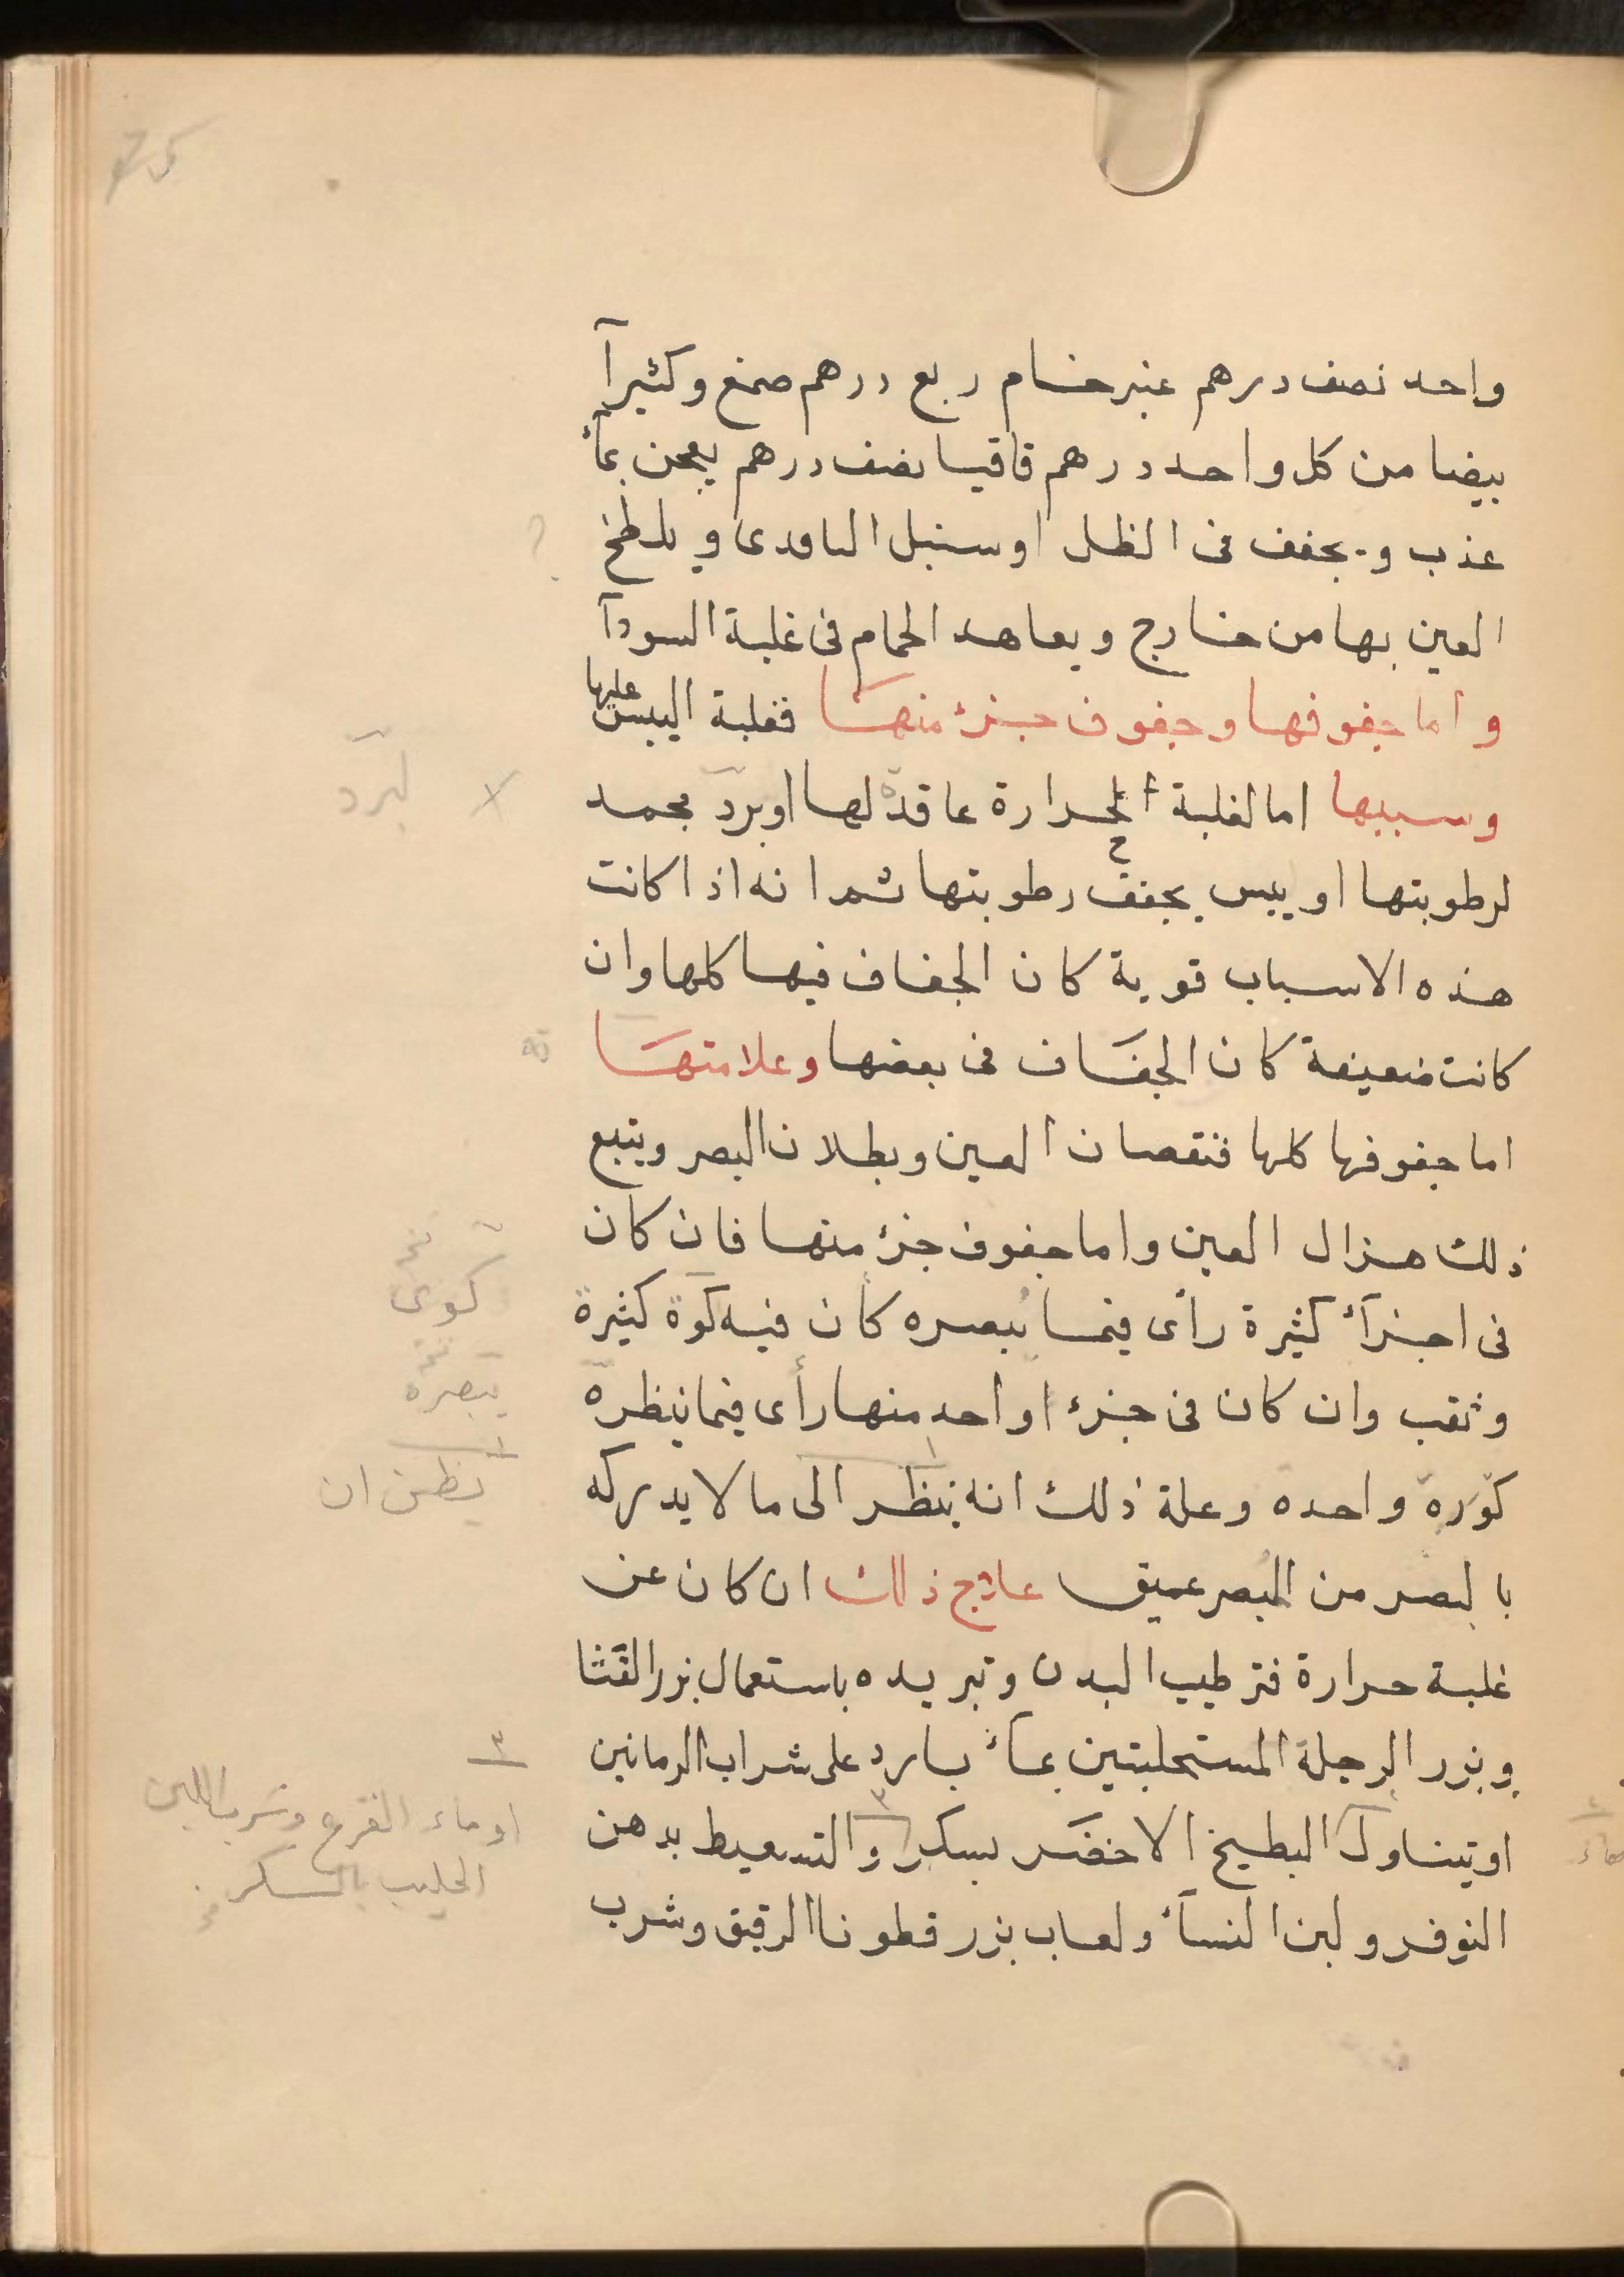 واحد نصف درهم عنبر خام ربع درهم صمغ وكثيرآ
بيضا من كل واحد درهم قاقيا نصف درهم يعجن بمآء
عذب و يجفف فى الظل او سنبل الناردى و يلطخ
العين بها من خارج ويعاهد الحمام فى غلبة السودآ
و اما جفوفها وجفوف جزء منها فغلبة اليبس عليها
وسببها اما لغلبة الحرارة عاقدة لها او برد مجمد
لرطوبتها او يبس يجفف رطوبتها ثم انه اذا كانت
هذه الاسباب قوية كان الجفاف فيها كلها وان
كانت ضعيفة كان الجفاف فى بعضها وعلامتها
اما جفوفها كلها فنقصان العين وبطلان البصر ويتبع
ذلك هزال العين واما جفوف جزء منها فان كان
فى اجزآء كثيرة رأى فيما يبصره كأن فيه كوة كثيرة
وثقب وان كان فى جزء او احد منها رأى فيما ينظره
كورة واحده وعلة ذلك انه ينظر الى ما لا يدركه
بالبصر من المبصر عميق علاج ذلك ان كان عن
غلبة حرارة فترطيب البدن وتبريده باستعمال بزر القثا
وبزر الرجلة المستحلبتين بمآء بارد على شراب الرمانين
او يتناول البطيخ الاخضر بسكر والتسعيط بدهن
النوفر ولبن النسآء ولعاب بزر قطونا الرقيق وشرب
?
لبرد
ته
كوى
يبصره
يظن ان
٣
او ماء القرع وشرب اللبن
الحليب بالسكر